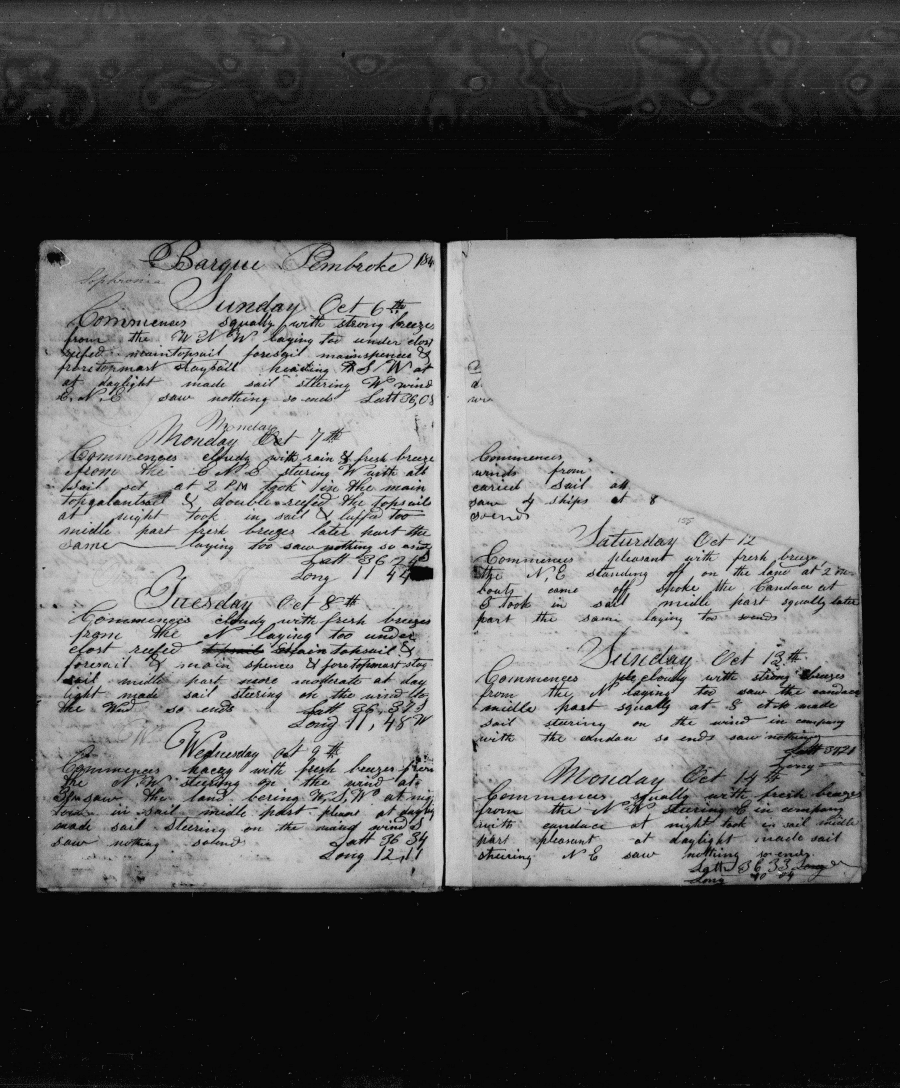 Barque Pembroke 184
Sophronia
Sunday Oct 6th
Commences squally with strong breeze
from the W N W laying too under close
reefed maintopsail foresail mainspencer &
foretopmast staysail heading S W at
at daylight made sail stering W wind
E. N. E saw nothing so ends Latt 36,08
Monday
Monday Oct 7th
Commences cloudy with rain & fresh breeze
from the E N E stering W with all
sail set at 2 PM took in the main
topgalantsail & double reefed the topsails
at night took in sail & luffed too
midle part fresh breezes later part the
same laying too saw nothing so ends
Latt 36 24
Long 11 44
Tuesday Oct 8th
Commences cloudy with fresh breezes
from the N laying too under
clost reefed main topsail &
foresail & main spencer & foretopmast stay
sail midle part more moderate at day
light made sail stering on the wind to
the Wd so ends Latt 36,37 S
Long 11,48 W
Wednesday Oct 9th
Commences hacey with fresh breezes from
the N. W. steering on the wind at
saw the land bering W,S,W at nig
took in sail midle part pleas at daylig
made sail steering on the wind wind S
saw nothing soends Latt 36 34
Long 12,11
Commences
winds from
caried sail at
saw 4 ships at 8
so ends
155
Saturday Oct 12
Commences pleasant with fresh breeze
the N, E standing off on the land at 2 two
bouts come off spoke the Candace at
8 took in sail midle part squally later
part the same laying too so ends
Sunday Oct 13th
Commences cloudy with strong breezes
from the N laying too saw the candace
midle part squally at 8 clk made
sail steering on the wind in company
with the candace so ends saw nothing
Latt 37,21
Long
Monday Oct 14th
Commences squally with fresh breezes
from the N W steering E in company
with candace at night took in sail midle
part pleasant at daylight made sail
steering N E saw nothing so ends
Latt 36 33 Long
Long 10 04